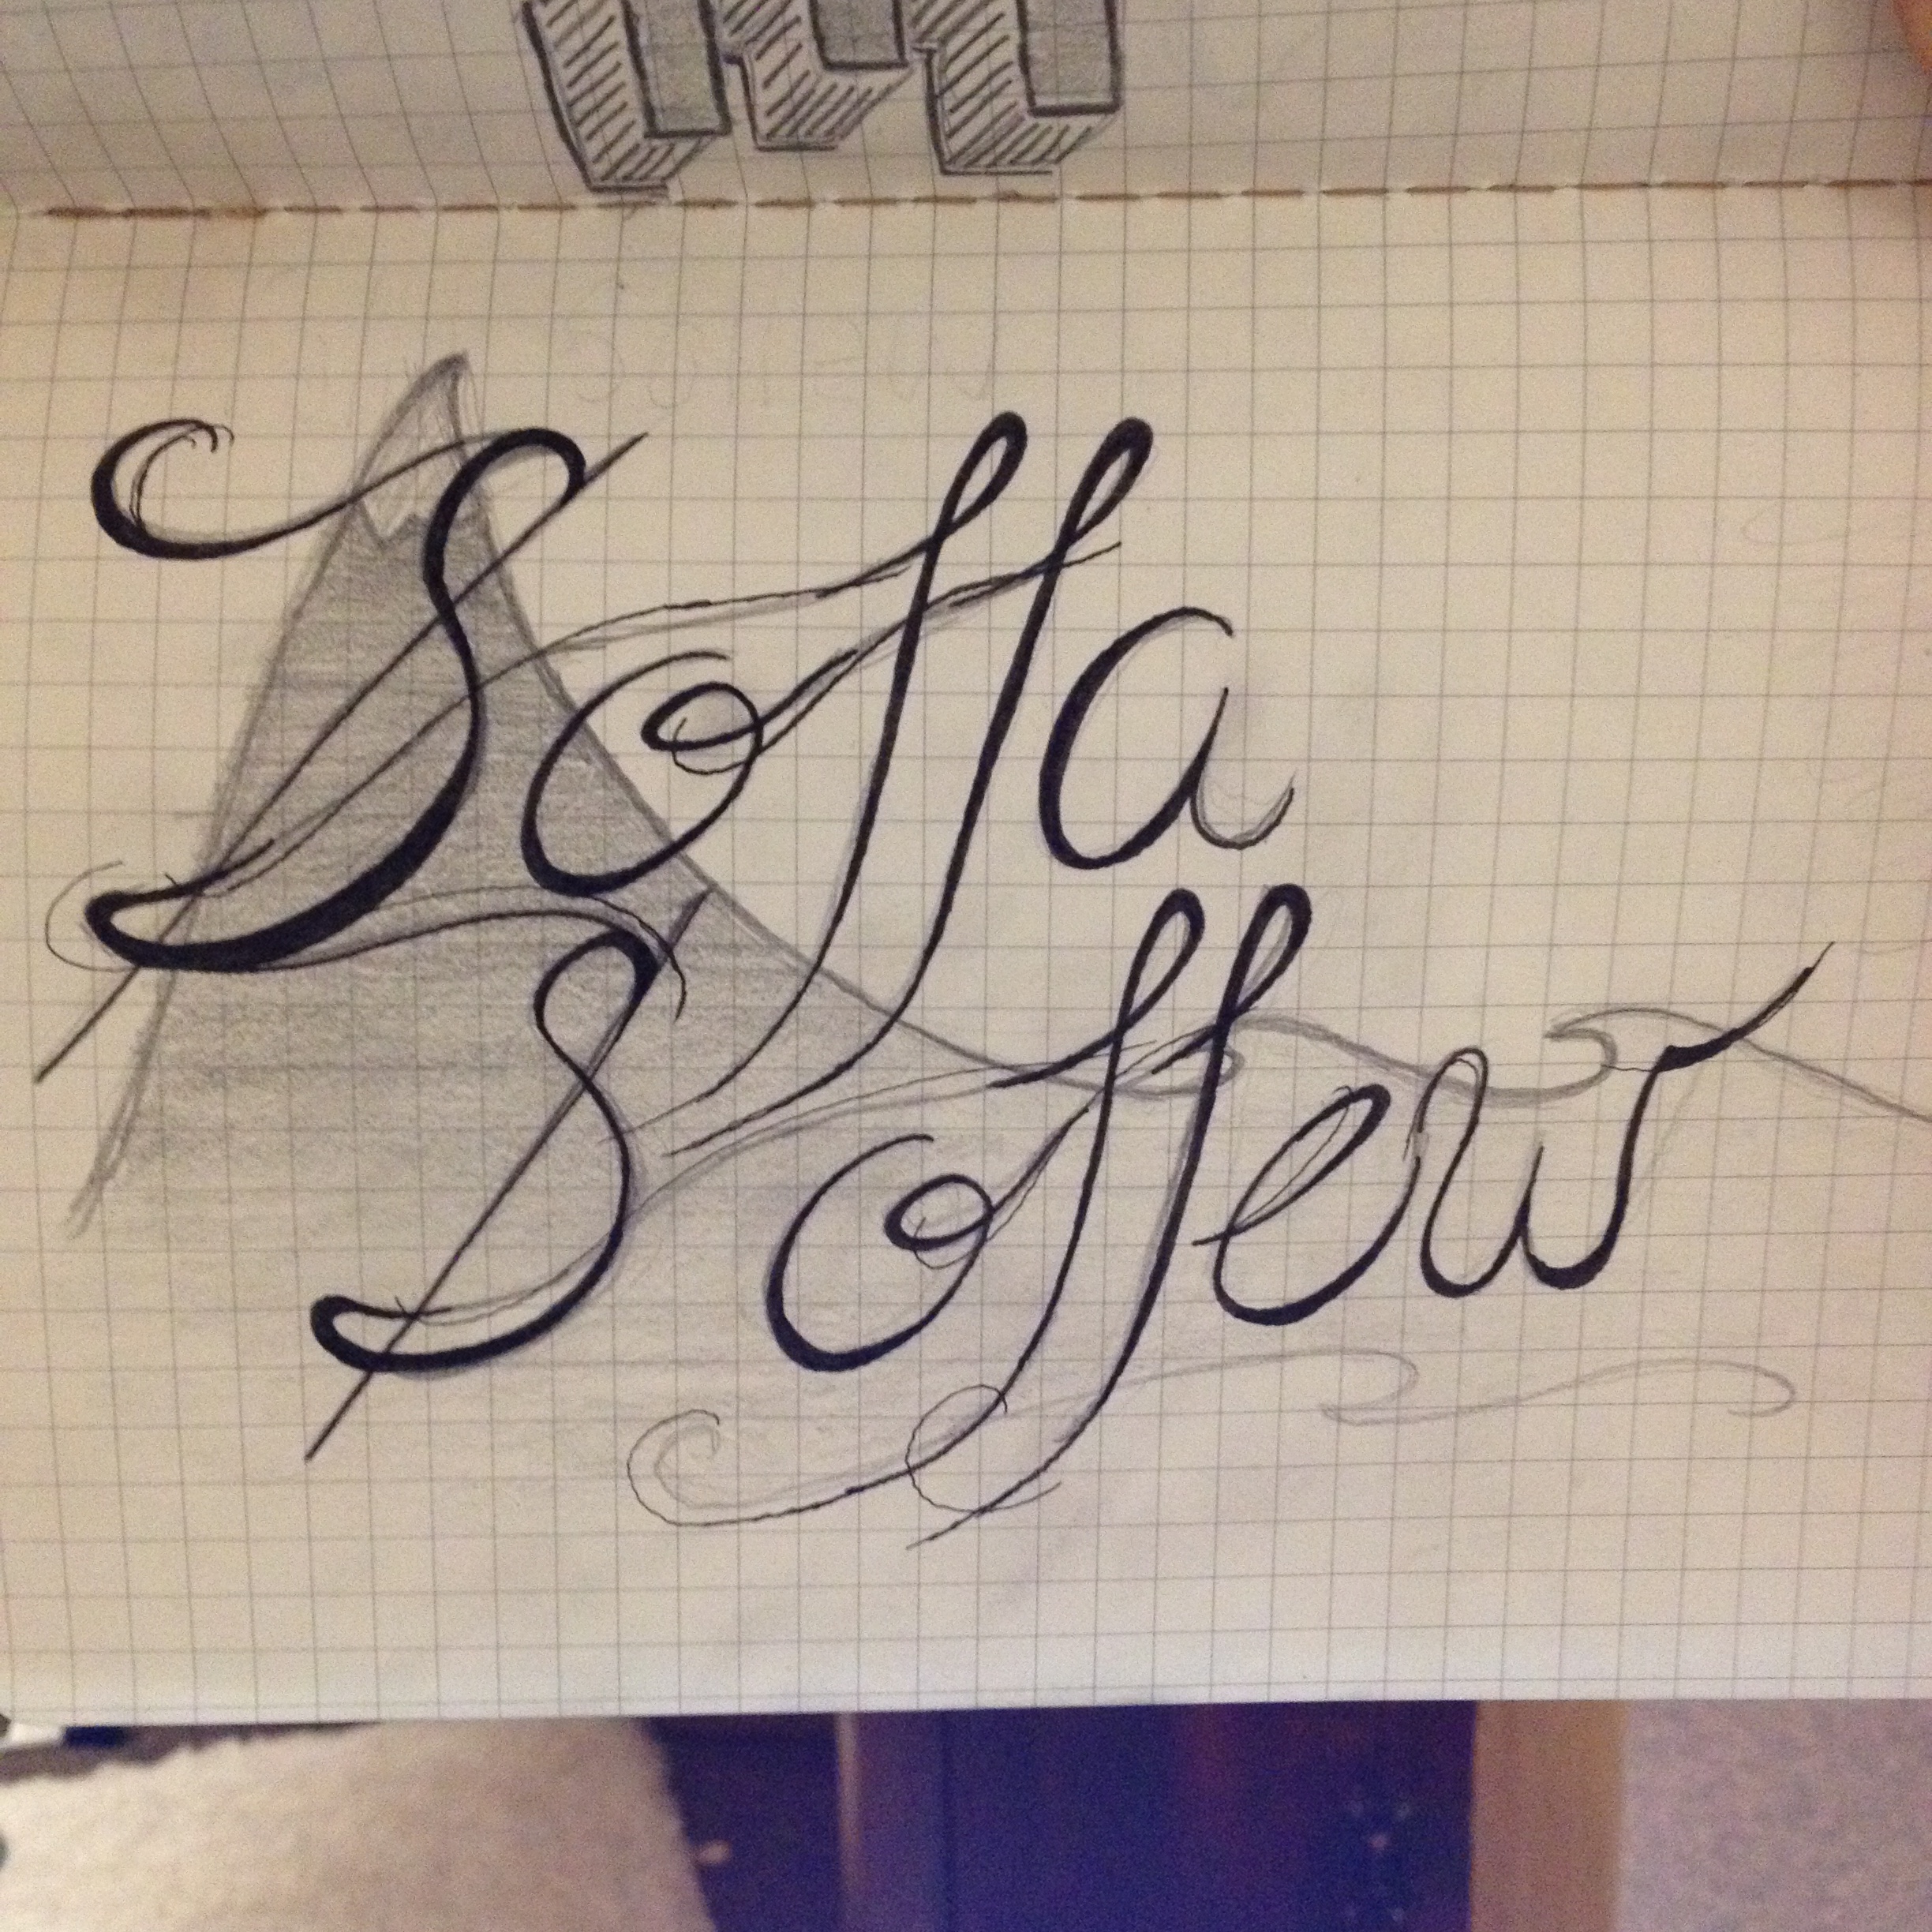 Solla
Sollew